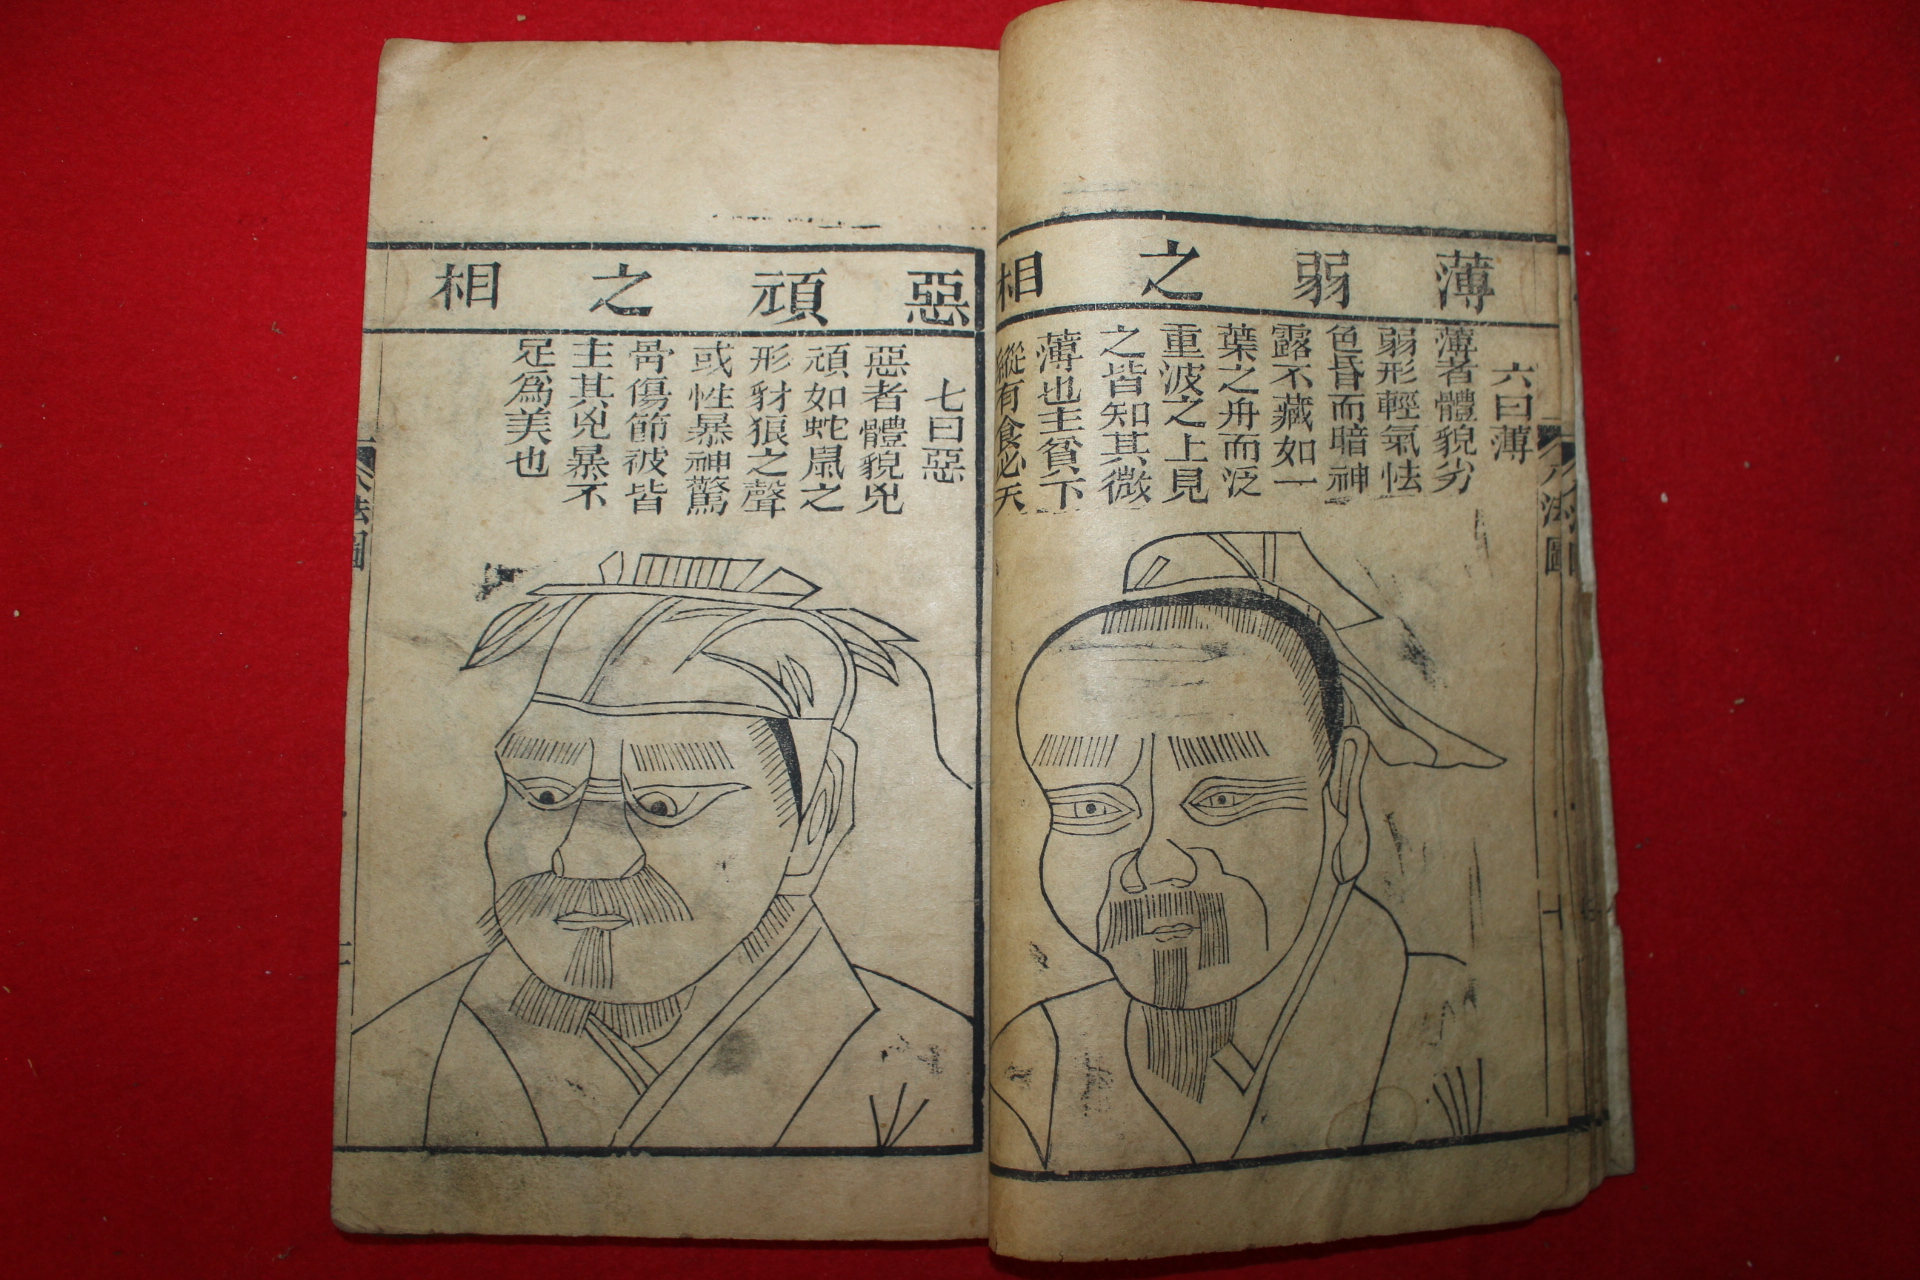 薄弱之相
六曰薄
薄者體貌劣
弱形輕氣怯
色昏而暗神
露不藏如一
葉之舟而泛
重波之上見
之皆知其微
薄也主貧下
縱有食必夭
惡頑之相
七曰惡
惡者體貌兇
頑如蛇鼠之
形豺狼之聲
或性暴神驚
骨傷節破皆
主其兇暴不
足為美也
八法圖